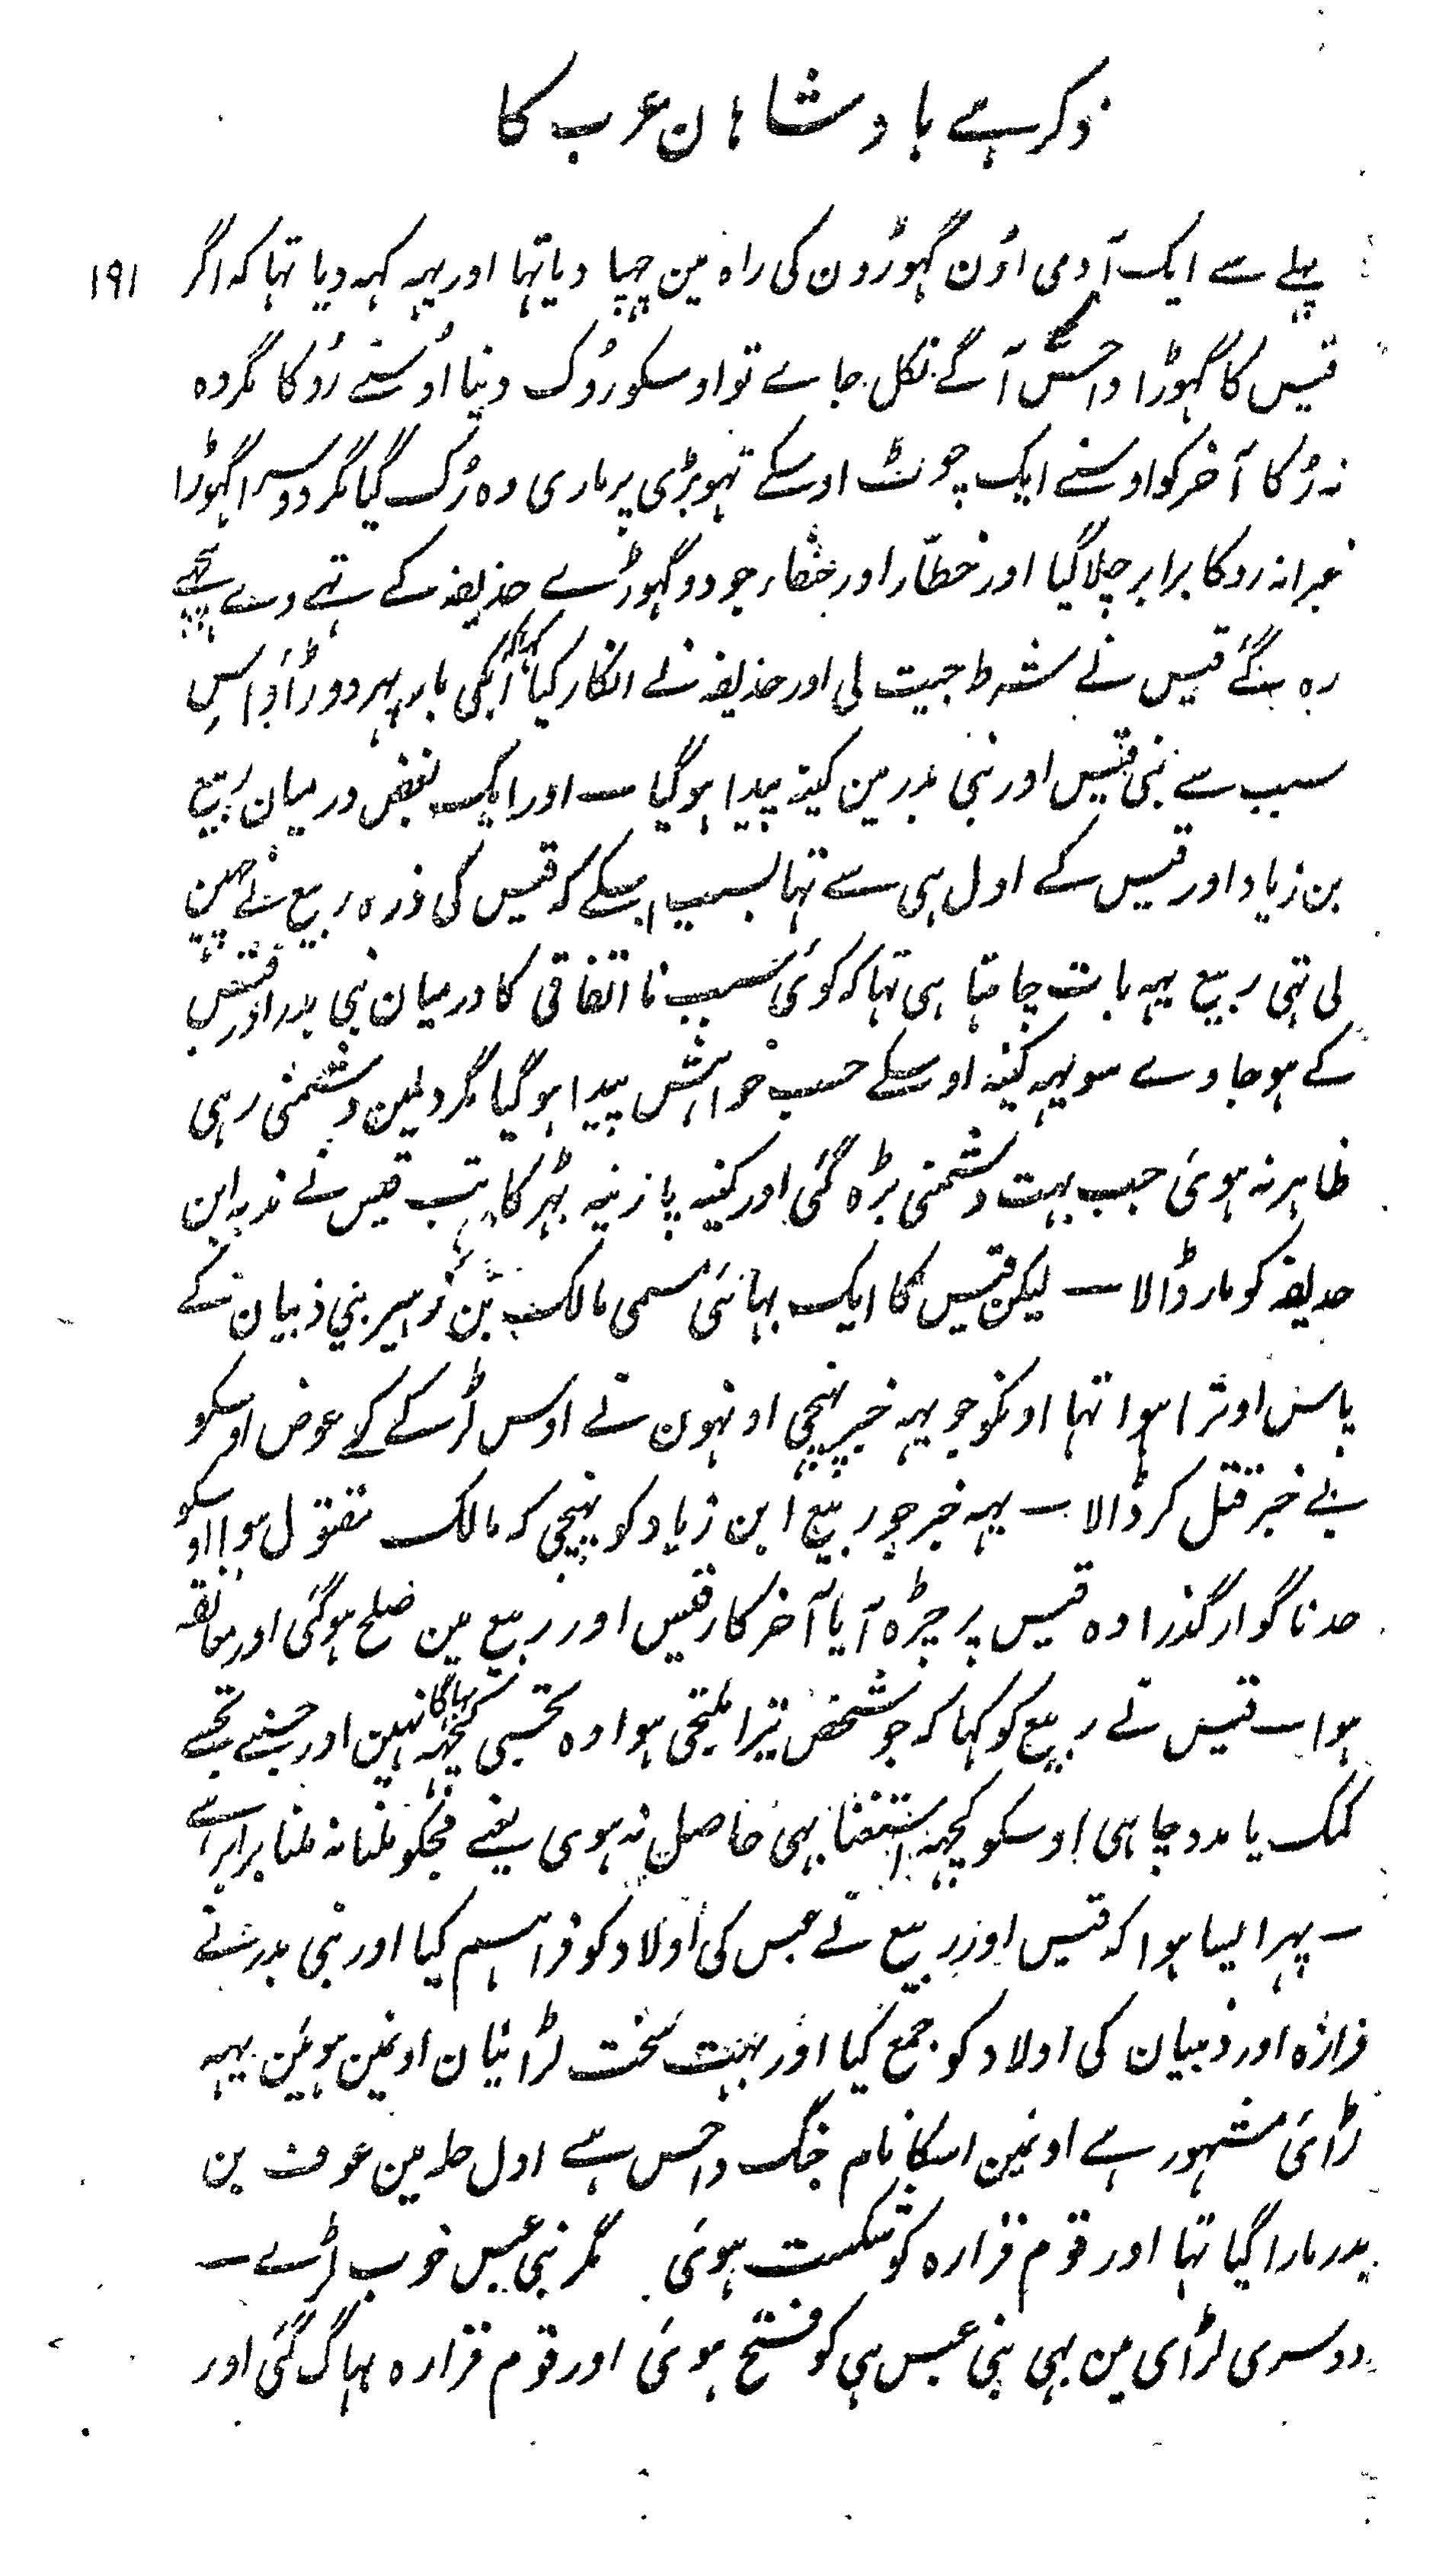 ذکر ہے بادشاہان عرب کا
پہلے سے ایک آدمی اوُن گہوڑون کی راہ مین چہپا دیا تہا اور یہہ کہہ دیا تہا کہ اگر ۱۹۱
قیس کا گہوڑا داحس آگے نکل جاے تو اوسکو روُک دینا اوُسنے روُکا مگر وہ
نہ رُکا آخر کو اوسنے ایک چونٹ اوسکے تہوبڑی پر ماری وہ رُک گیا مگر دوسرا گہوڑا
غبرا نہ روکا برابر چلا گیا اور خطّار اور خنفاء جو دو گہوڑے حذیفہ کے تہے وے پیچہے
رہ گئے قیس نے شرط جیت لی اور حذیفہ نے انکار کیا کہا کہ ابکی بار پہر دوڑاؤ اس
سبب سے بنی قیس اور بنی بدر مین کینہ پیدا ہو گیا ــ اور ایک بغض درمیان ربیع
بن زیاد اور قیس کے اول ہی سے تہا بسبب اسکے کہ قیس کی ذرہ ربیع نے چہین
لی تہی ربیع یہہ بات چاہتا ہی تہا کہ کوئی سبب نا اتفاقی کا درمیان بنی بدر اور قیس
کے ہو جاوے سو یہہ کینہ اوسکے حسب خواہش پیدا ہو گیا مگر دلمین دشمنی رہی
ظاہر نہ ہوئی جب بہت دشمنی بڑہ گئی اور کینہ پازنیہ بہڑکا تب قیس نے ندبہ ابن
حدیفہ کو مار ڈالا ــ لیکن قیس کا ایک بہائی مسمی مالک بن زہیر بنی ذبیان کے
پاس اوترا ہوا تہا اونکو جو یہہ خبر پہنچی اونہون نے اوس لڑکے کے عوض اوسکو
بے خبر قتل کر ڈالا ــ یہہ خبر جو ربیع ابن زیاد کو پہنچی کہ مالک مقتول ہوا اوسکو
حد ناگوار گذرا وہ قیس پر چڑہ آیا آخر کار قیس اور ربیع مین صلح ہو گئی اور معانقہ
ہوا ــ قیس نے ربیع کو کہا کہ جو شخص تیرا ملتجی ہوا وہ تجسی کچہہ بہاگا نہین اور جسنے تجسے
کمک یا مدد چاہی اوسکو کچہہ استغنا بہی حاصل نہ ہوی یعنے مجکو ملنا نہ ملنا برابر ہے
ــ پہر ایسا ہوا کہ قیس اور ربیع نے عبس کی اولاد کو فراہم کیا اور بنی بدر نے
فزارہ اور ذبیان کی اولاد کو جمع کیا اور بہت سخت لڑائیان اونمین ہوئین یہہ
لڑائی مشہور ہے اونمین اسکا نام جنگ داحس ہے اول حلہ مین عوف بن
بدر مارا گیا تہا اور قوم فزارہ کو شکست ہوئی مگر بنی عبس خوب لڑے ــ
دوسری لڑای مین بہی بنی عبس ہی کو فتح ہوئی اور قوم فزارہ بہاگ گئی اور